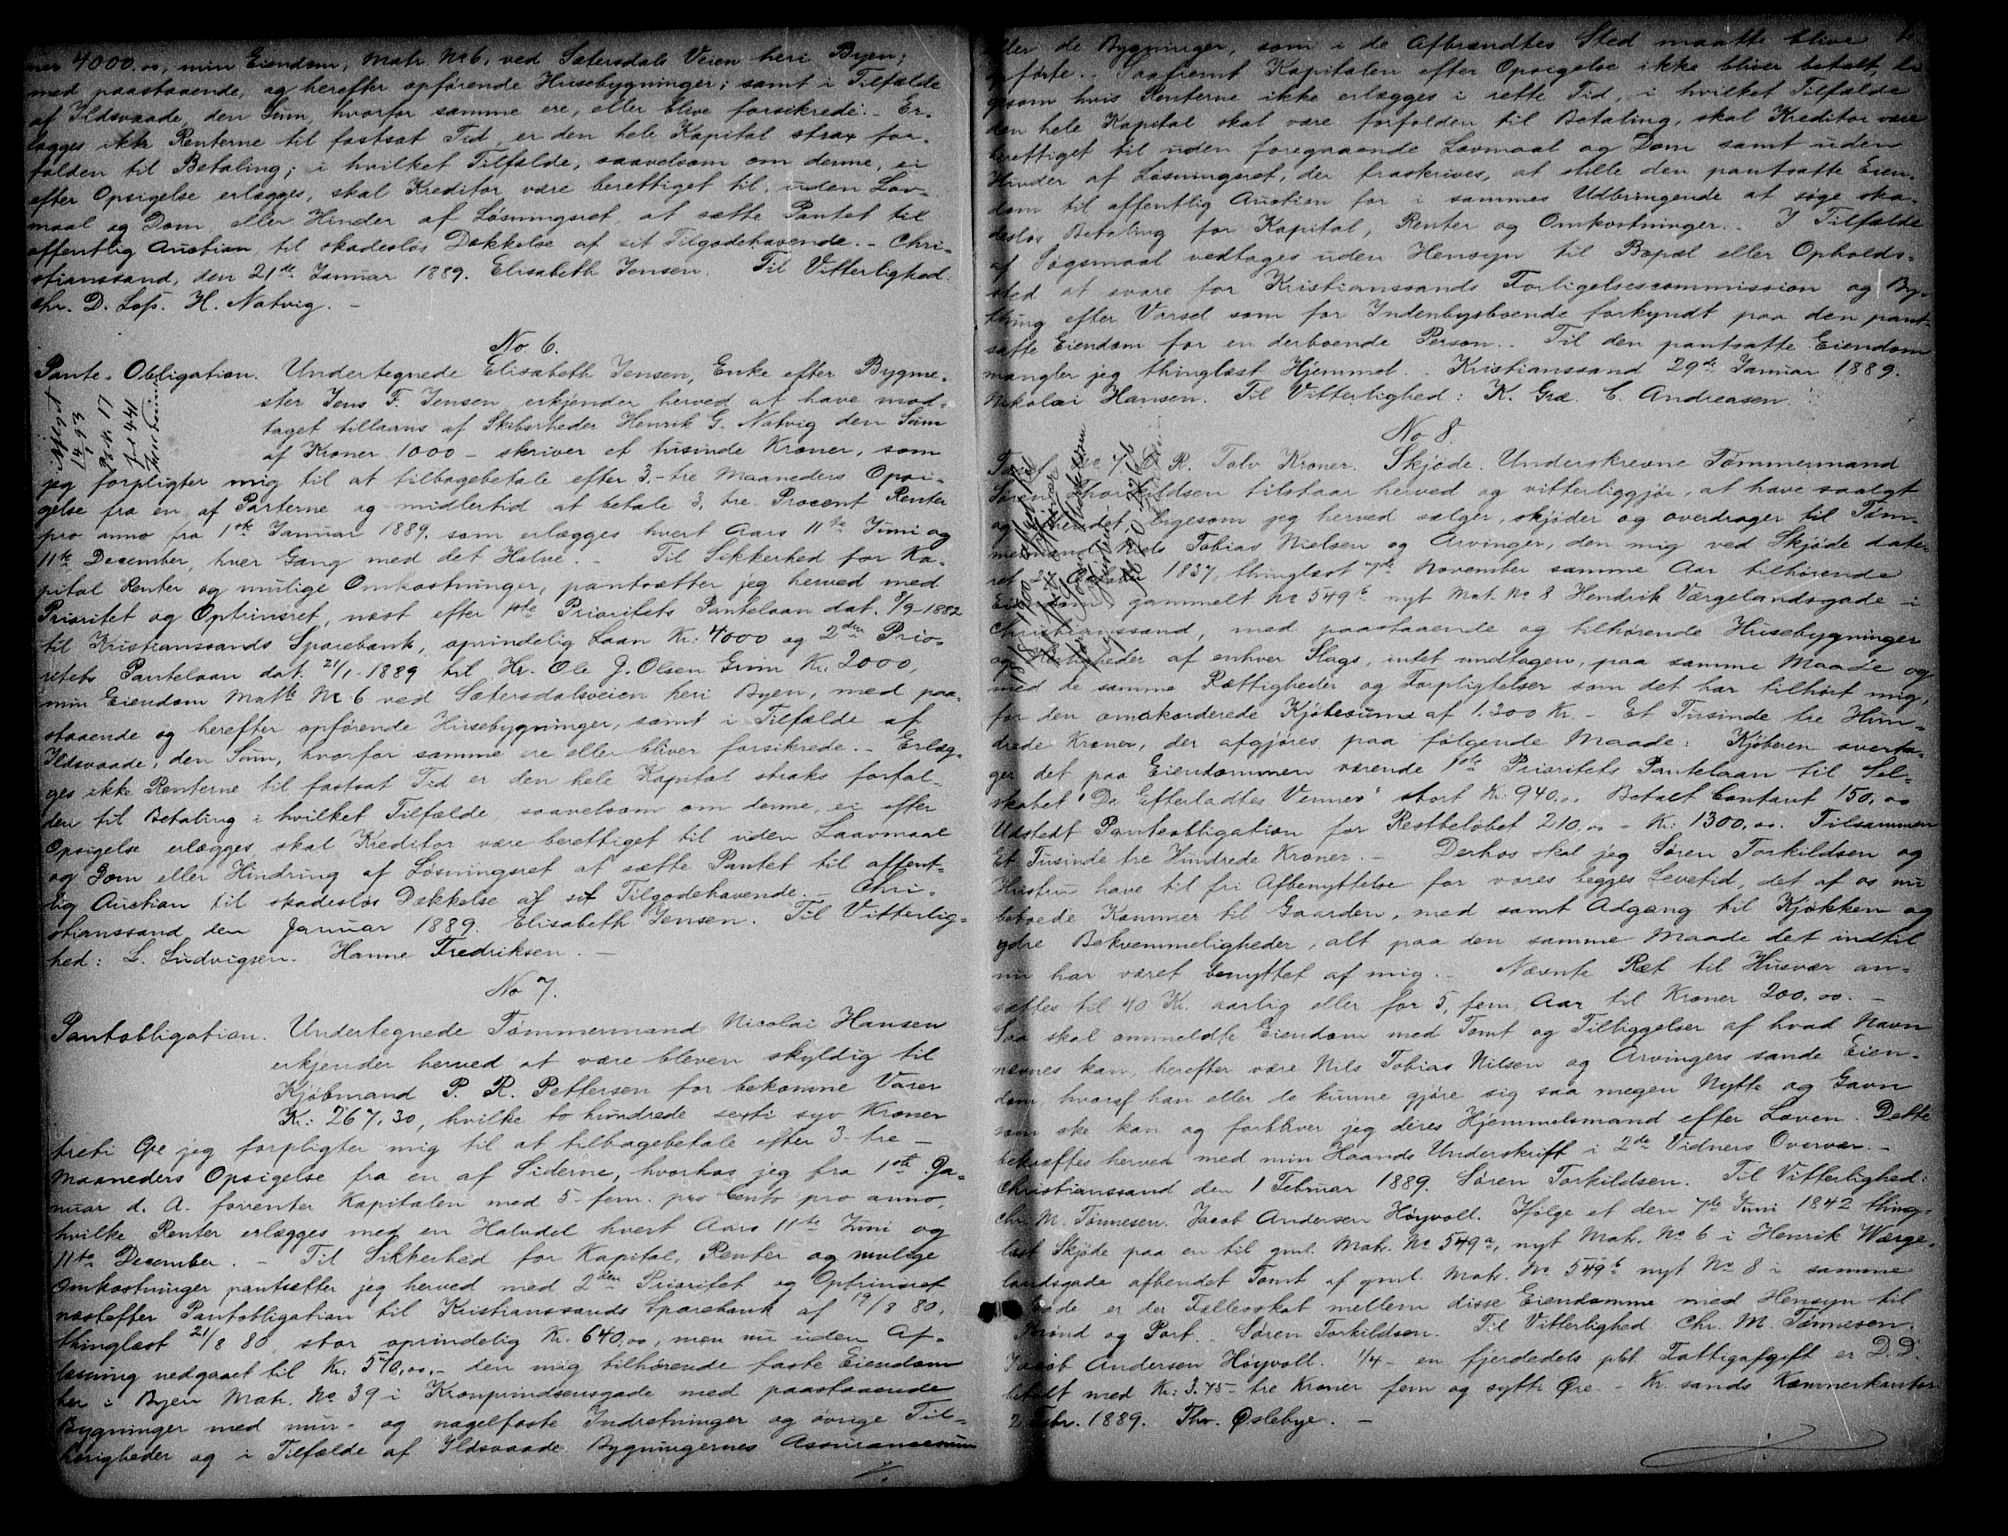 ner 4000.oo, min Eiendom, Matr. No 6, ved Sætersdals Veien heri Byen,
med paastaaende, og herefter opførende Husebygninger; samt i Tilfælde
af Ildsvaade, den Sum, hvorfor samme ere, eller blive forsikrede. - Er-
lægges ikke Renterne til fastsat Tid, er den hele Kapital strax for-
falden til Betaling; i hvilket Tilfælde, saavelsom om denne, ei
efter Opsigelse erlægges, skal Kreditor være berettiget til, uden Lov-
maal og Dom, eller Hinder af Løsningsret, at sætte Pantet til
offentlig Auction til skadesløs Dækkelse af sit Tilgodehavende. - Chri-
stianssand, den 21de Januar 1889. Elisabeth Jensen. Til Vitterlighed.
Chr. D. Lofs. H. Natvig. -
No 6.
Pante-Obligation. Undertegnede Elisabeth Jensen, Enke efter Bygme-
ster Jens F. Jensen erkjender herved at have mod-
taget tillaans af Skibsrheder Henrik G. Natvig den Sum
af Kroner 1000 - skriver et tusinde Kroner, som
jeg forpligter mig til at tilbagebetale efter 3.- tre Maaneders Opsi-
gelse fra en af Parterne og midlertid at betale 3, tre Procent Renter
pro anno fra 1ste Januar 1889, som erlægges hvert Aars 11te Juni og
11te December, hver Gang med det Halve. - Til Sikkerhed for Ka-
pital Renter og mulige Omkostninger, pantsætter jeg herved med
Prioritet og Optrinsret, næst efter 1ste Prioritets Pantelaan dat. 8/9-1882
til Kristianssands Sparebank, oprindelig Laan Kr: 4000 og 2den Prio-
ritets Pantelaan dat. 21/1-1889 til Hr. Ole J. Olsen Grim Kr. 2000,
min Eiendom Matr No 6 ved Sætersdalsveien heri Byen, med paa-
staaende og herefter opførende Husebygninger, samt i Tilfælde af
Ildsvaade, den Sum, hvorfor samme ere eller bliver forsikrede. - Erlæg-
ges ikke Renterne til fastsat Tid er den hele Kapital straks forfal-
den til Betaling i hvilket Tilfælde saavelsom om denne, ei efter
Opsigelse erlægges skal Kreditor være berettiget til uden Laavmaal
og Dom eller Hindring af Løsningsret at sætte Pantet til offent-
lig Auction til skadesløs Dækkelse af sit Tilgodehavende. - Chri-
stianssand, den Januar 1889. Elisabeth Jensen. Til Vitterlig-
hed: L. Ludvigsen. Hanne Fredriksen. -
No 7.
Pantobligation. Undertegnede Tømmermand Nicolai Hansen
erkjender herved at være bleven skyldig til
Kjøbmand P. R. Pettersen for bekomne Varer
Kr: 267,30, hvilke to hundrede sexti syv Kroner
treti Øre jeg forpligter mig til at tilbagebetale efter 3- tre -
Maaneders Opsigelse fra en af Siderne, hvorhos jeg fra 1ste Ja-
nuar d. A. forrenter Kapitalen med 5- fem. pro Cento pro anno,
hvilke Renter erlægges med en Halvdel hvert Aars 11te Juni og
11te December. - Til Sikkerhed for Kapital, Renter og mulige
Omkostninger pantsætter jeg herved med 2den Prioritet og Optrinsret
næstefter Pantobligation til Kristianssands Sparebank af 19/8 80,
thinglæst 21/8 80, stor oprindelig Kr. 640,oo, men nu uden Af-
læsning nedgaaet til Kr: 570,oo,- den mig tilhørende faste Eiendom
her i Byen Matr. No 39 i Kronprindsensgade med paastaaende
Bygninger med mur- og nagelfaste Indretninger og øvrige Til-
hørigheder og i Tilfælde af Ildsvaade Bygningernes Assurancesum
eller de Bygninger, som i de Afbrændtes Sted maatte blive
opførte. - Saafremt Kapitalen efter Opsigelse ikke bliver betalt, li-
gesom hvis Renterne ikke erlægges i rette Tid, i hvilket Tilfælde
den hele Kapital skal være forfalden til Betaling, skal Kreditor være
berettiget til uden foregaaende Lovmaal og Dom samt uden
Hinder af Løsningsret, der fraskrives, at stille den pantsatte Eien-
dom til offentlig Auction for i sammes Udbringende at søge ska-
desløs Betaling for Kapital, Renter og Omkostninger. - I Tilfælde
af Søgsmaal vedtages uden Hensyn til Bopæl eller Opholds-
sted at svare for Kristianssands Forligelsescommission og By-
thing efter Varsel som for Indenbysboende forkyndt paa den pant-
satte Eiendom for en derboende Person. - Til den pantsatte Eiendom
mangler jeg thinglæst Hjemmel. Kristianssand 29de Januar 1889.
Nikolai Hansen. Til Vitterlighed: K. Græ. C. Andreasen.
No 8.
R. Tolv Kroner. Skjøde. Underskrevne Tømmermand
Søren Thorkildsen tilstaar herved og vitterliggjør, at have saalgt
ligesom jeg herved sælger, skjøder og overdrager til Tøm-
mermand Niels Tobias Nielsen og Arvinger, den mig ved Skjøde date-
ret 1837, thinglæst 7de November samme Aar tilhørende
Eiendom gammelt No 549b nyt Mat. No 8 Hendrik Værgelandsgade i
Christianssand, med paastaaende og tilhørende Husebygninger
og Herligheder af enhver Slags, intet undtagen, paa samme Maade og
med de samme Rættigheder og Forpligtelser som det har tilhørt mig,
for den omakorderede Kjøbesum af 1.300 Kr. - Et Tusinde tre Hun-
drede Kroner, der afgjøres paa følgende Maade: Kjøberen overta-
ger det paa Eiendommen værende 1ste Prioritets Pantelaan til Sel-
skabet "De Efterladtes Venner" stort Kr. 940.oo Betalt Contant 150,oo
Udstedt Panteobligation for Restbeløbet 210,oo - Kr: 1300,oo. Tilsammen
Et Tusinde tre Hundrede Kroner. - Derhos skal jeg Søren Torkildsen og
Hustru have til fri Afbenyttelse for vores begges Levetid, det af os nu
beboede Kammer til Gaarden, med samt Adgang til Kjøkken og
ydre Bekvemmeligheder, alt paa den samme Maade det indtil
nu har været benyttet af mig. - Nævnte Ret til Husvær an-
sættes til 40 Kr. aarlig eller for 5, fem, Aar til Kroner 200.oo. -
Saa skal ommeldte Eiendom med Tomt og Tilliggelser af hvad Navn
nævnes kan, herefter være Nils Tobias Nilsen og Arvingers sande Eien-
dom, hvoraf han eller de kunne gjøre sig saa megen Nytte og Gavn
som ske kan og forbliver jeg deres Hjemmelsmand efter Loven. Dette
bekræftes herved med min Haands Underskrift i 2de Vidners Overvær. -
Christianssand den 1 Februar 1889. Søren Torkildsen. Til Vitterlighed:
Chr. M. Tønnesen. Jacob Andersen Høyvoll. Ifølge et den 7de Juni 1842 thing-
læst Skjøde paa en til gml. Matr. No 549a, nyt Matr. No 6 i Henrik Wærge-
landsgade afhendet Tomt af gml. Matr. No 549b nyt No 8 i samme
Gade er der Fælleoskat mellem disse Eiendomme med Hensyn til
Brønd og Port. Søren Torkildsen. Til Vitterlighed Chr. M. Tønnesen.
Jacob Andersen Høyvoll. 1/4- en fjerdedels pCt. Fattigafgift er D.D.
betalt med Kr: 3.75- tre Kroner fem og sytti Øre. - Kr.sands Kæmnerkontor
2 Febr. 1889. Thv. Øslebye. -